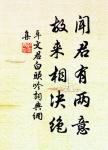 闻君有两意
故来相决绝
卓文君白头吟词典网
集